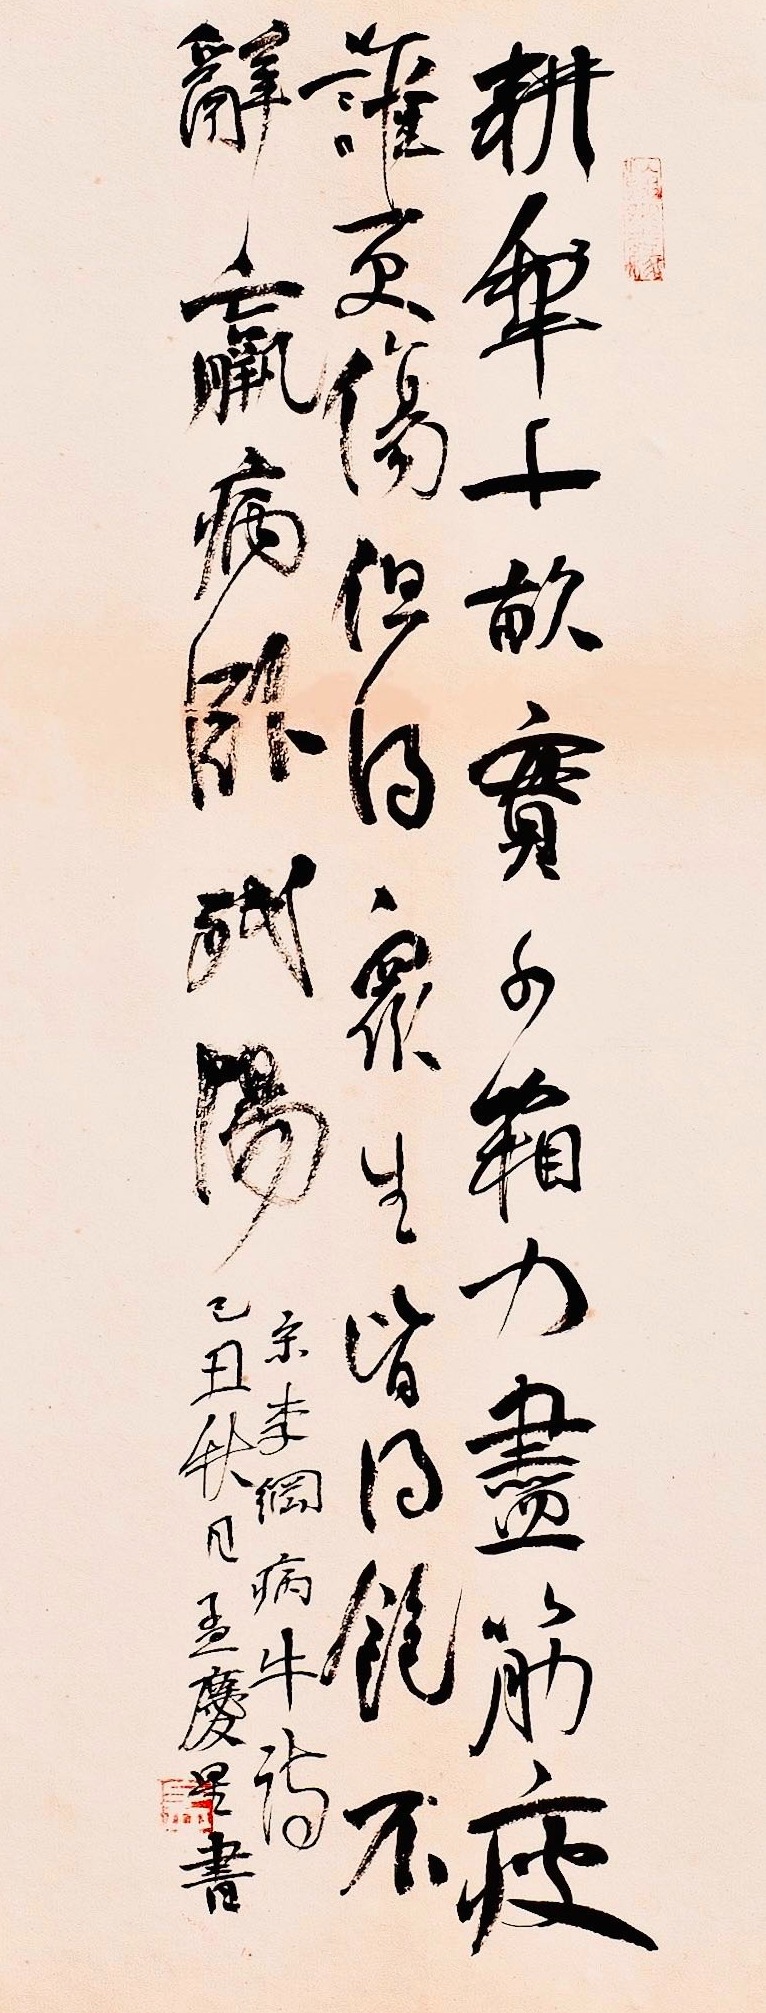 耕犁千畝實千箱力盡筋疲
誰更傷但得衆生皆得飽不
辭羸病卧殘陽
宋李綱病牛詩
己丑秋月孟慶星書